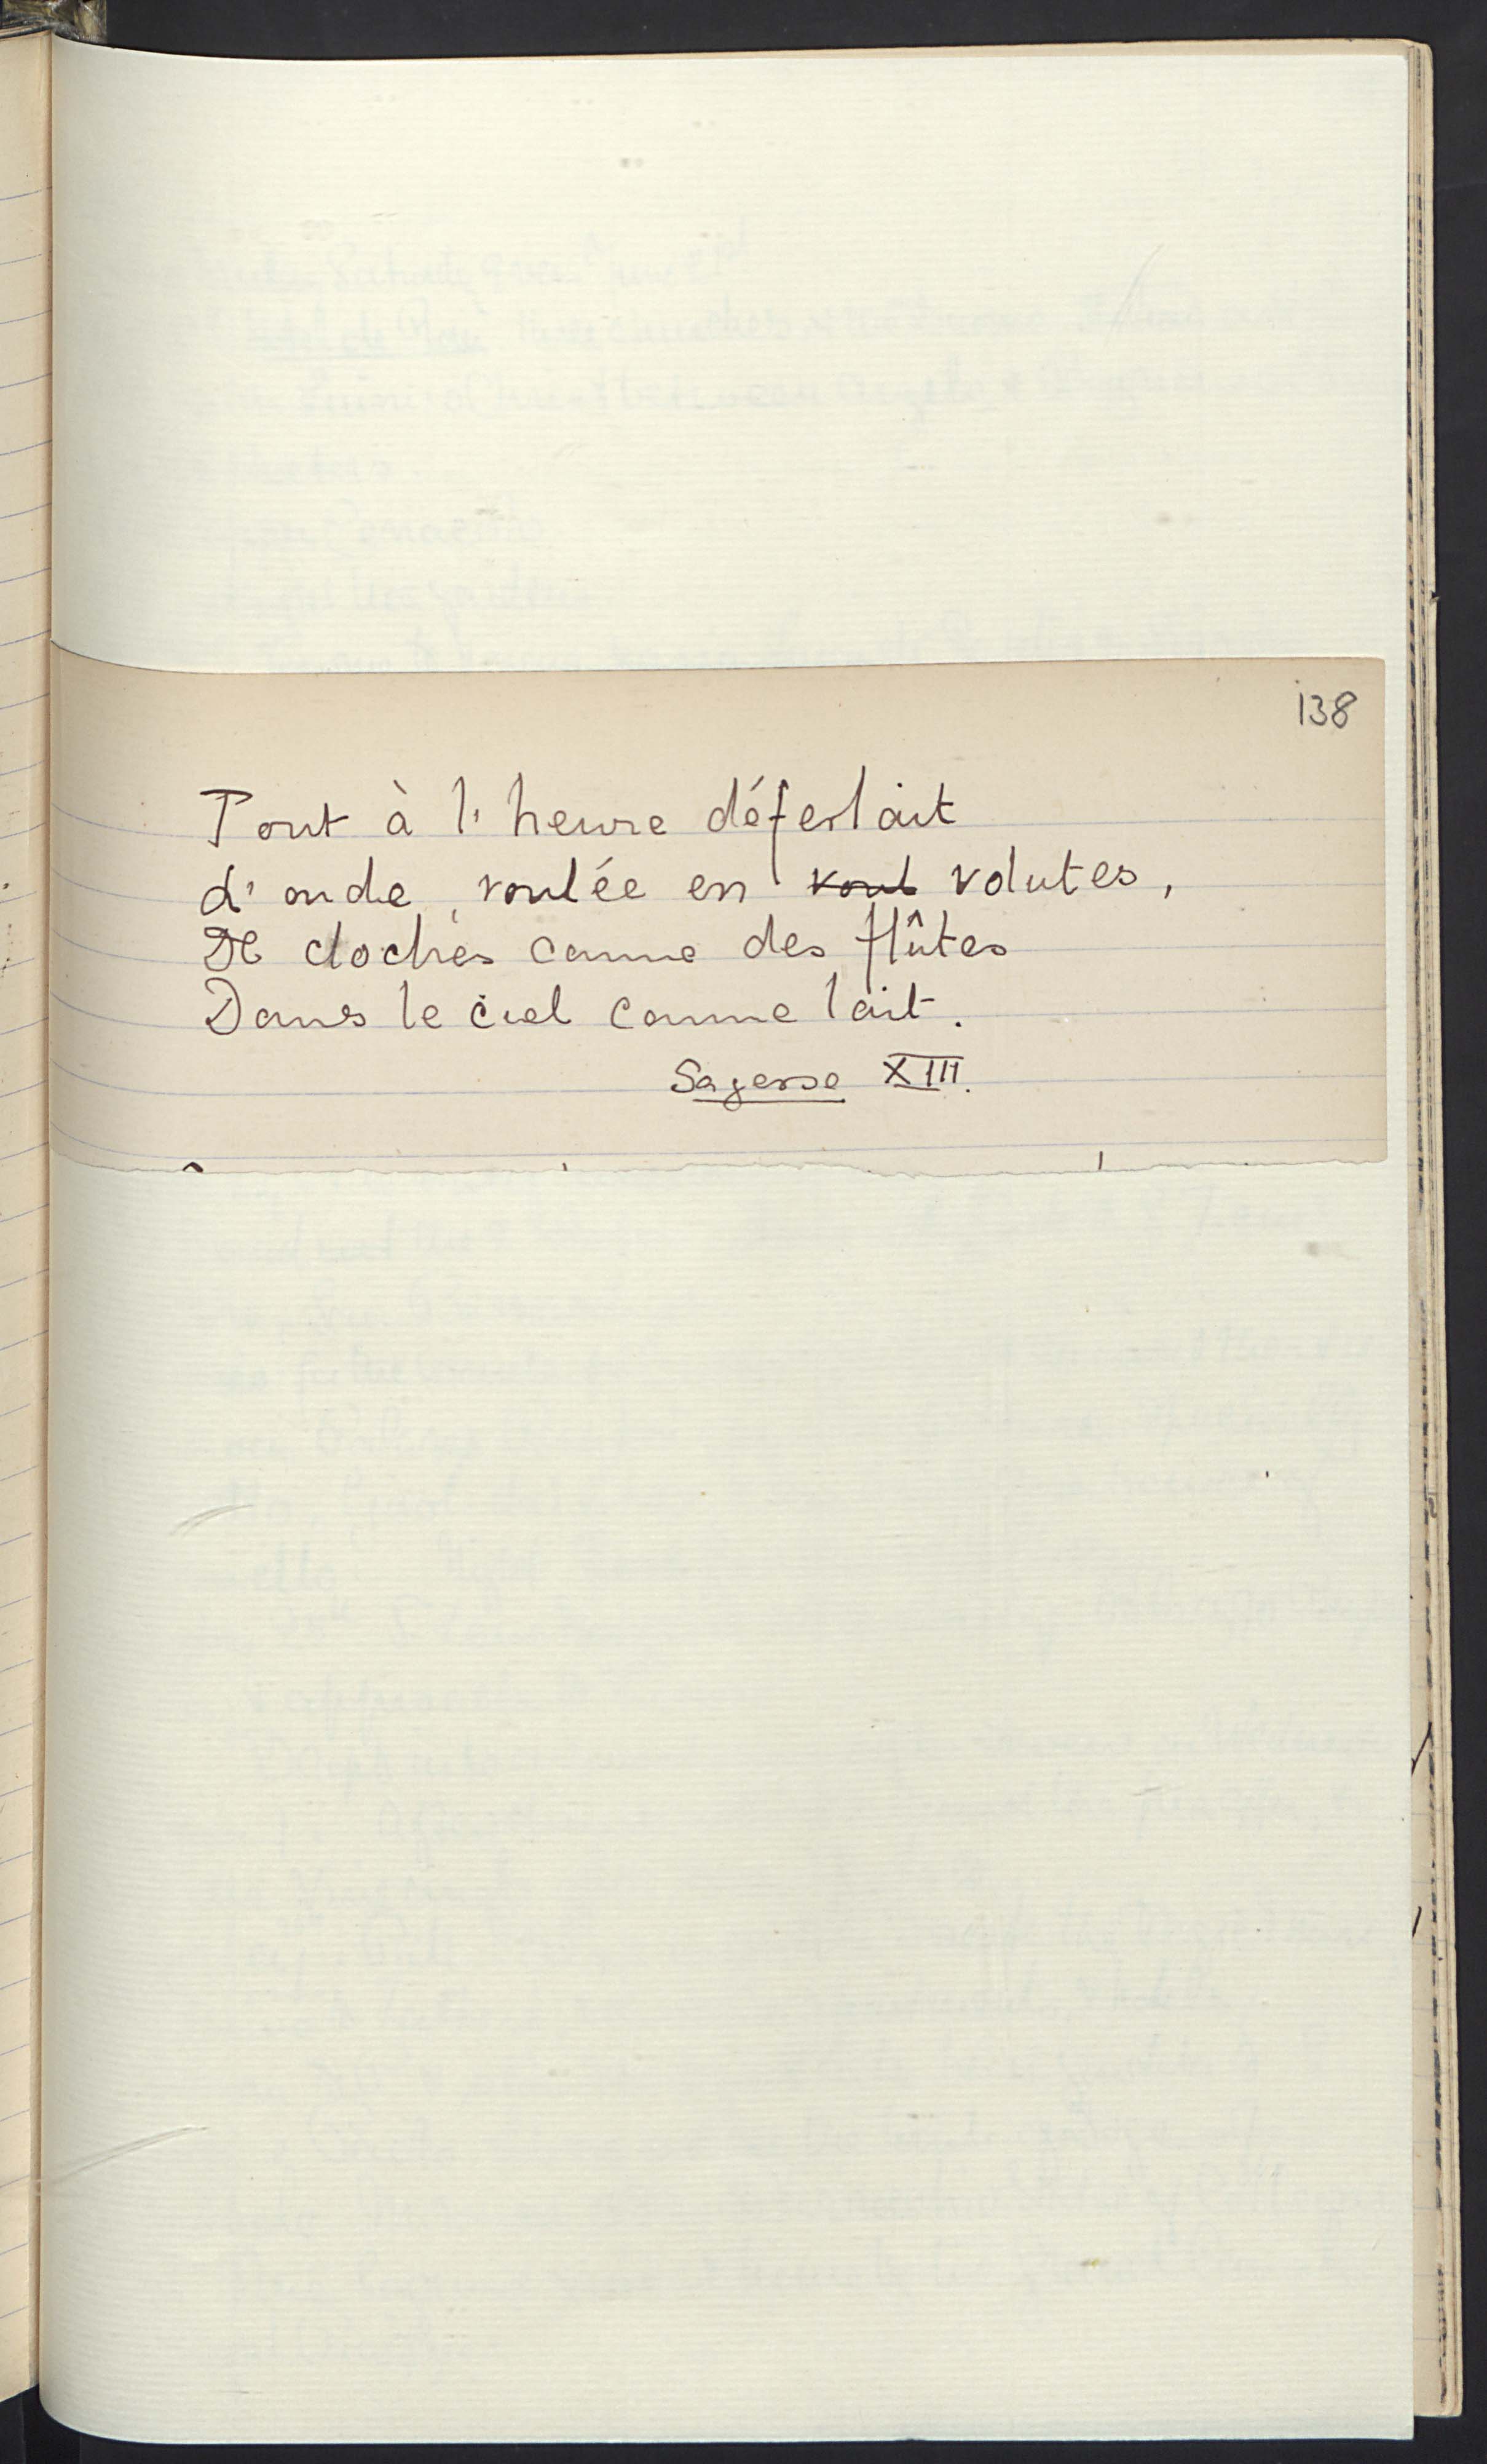 138
Tout à l'heure déferlait
d'onde, roulée en voul volutes,
De cloches comme des flûtes
Dans le ciel comme lait.
Sagesse XIII.